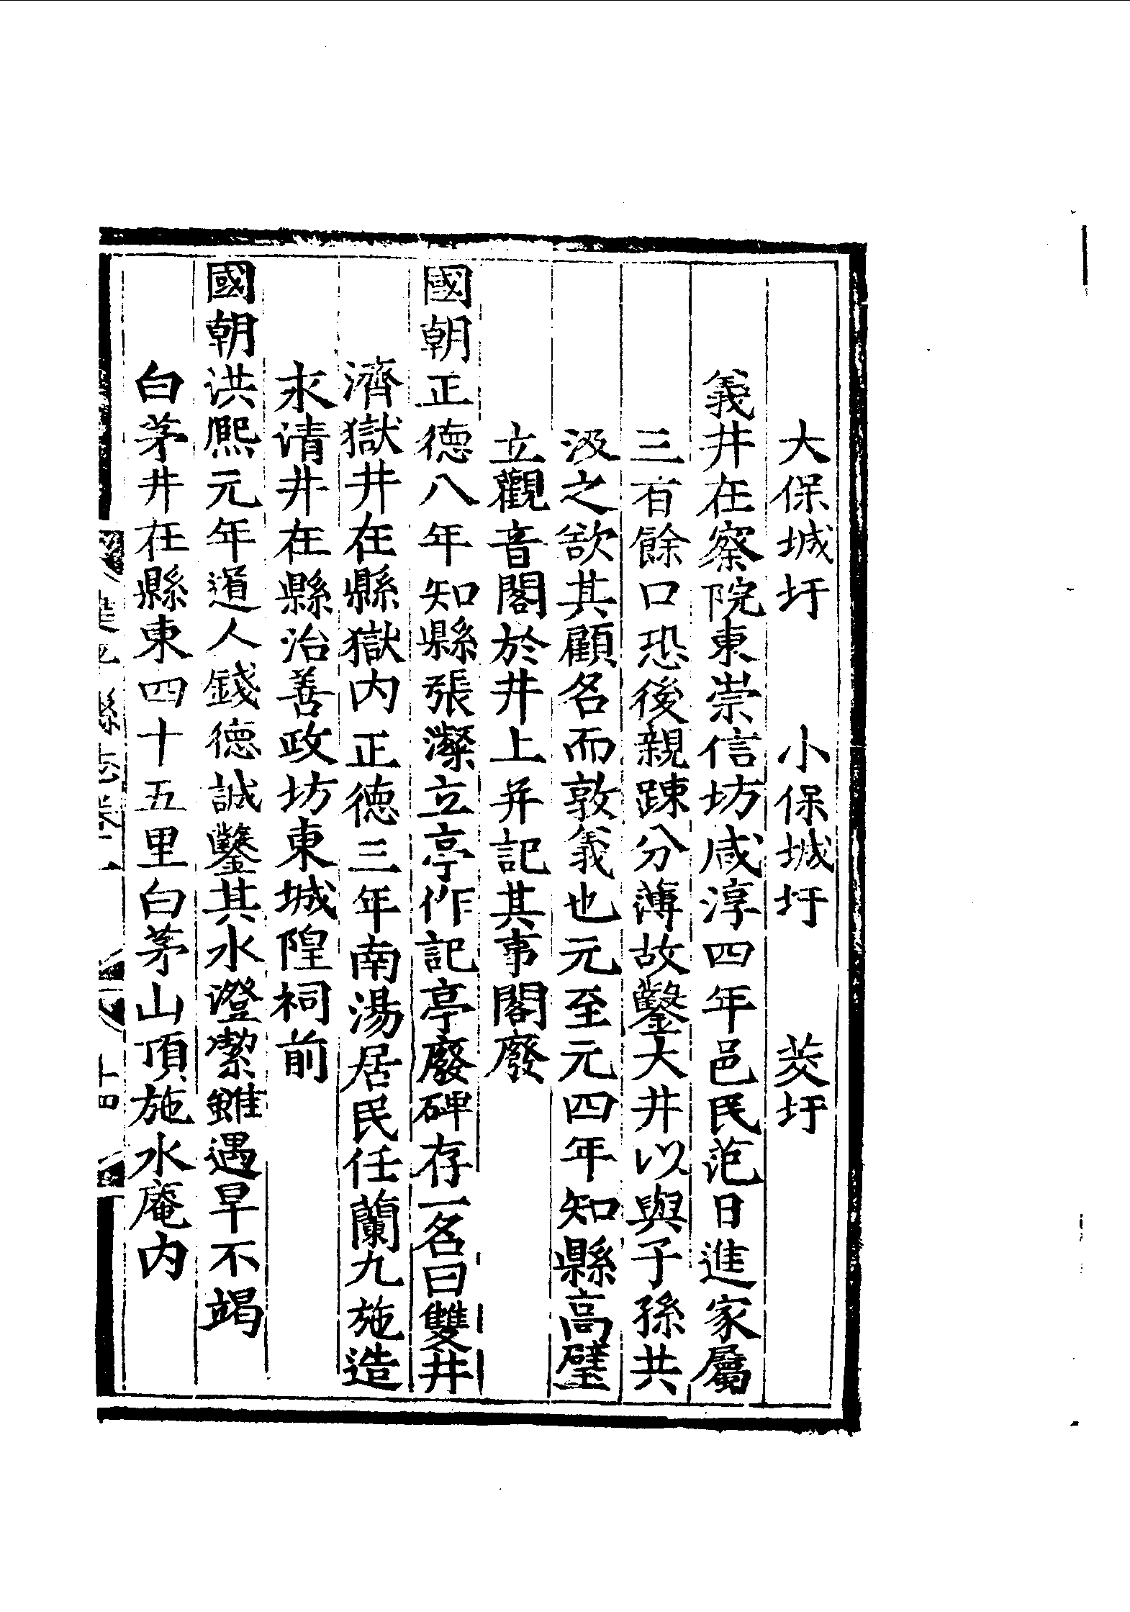 大保城圩　小保城圩　茭圩
義井在察院東崇信坊咸淳四年邑民范日進家屬
三百餘口恐後親踈分薄故鑿大井以與子孫共
汲之欲其顧名而敦義也元至元四年知縣高璧
立觀音閣於井上并記其事閣廢
國朝正德八年知縣張澯立亭作記亭廢碑存一名曰雙井
濟獄井在縣獄内正德三年南湯居民任蘭九施造
永清井在縣治善政坊東城隍祠前
國朝洪熈元年道人錢德誠鑿其水澄潔雖遇旱不竭
白茅井在縣東四十五里白茅山頂施水庵内
縣志卷二　十四